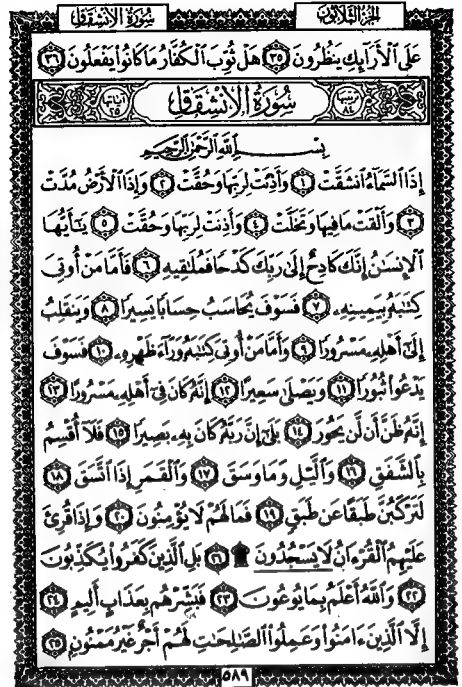 سُورَةُ الْانشِقَاقِ الجُزءُ الثَّلَاثُونَ
عَلَى الْأَرَائِكِ يَنظُرُونَ ٣٥ هَلْ ثُوِّبَ الْكُفَّارُ مَا كَانُوا يَفْعَلُونَ ٣٦
سُورَةُ الِانْشِقَاقِ
بِسْمِ اللَّهِ الرَّحْمَٰنِ الرَّحِيمِ
إِذَا السَّمَاءُ انشَقَّتْ ١ وَأَذِنَتْ لِرَبِّهَا وَحُقَّتْ ٢ وَإِذَا الْأَرْضُ مُدَّتْ
٣ وَأَلْقَتْ مَا فِيهَا وَتَخَلَّتْ ٤ وَأَذِنَتْ لِرَبِّهَا وَحُقَّتْ ٥ يَا أَيُّهَا
الْإِنسَانُ إِنَّكَ كَادِحٌ إِلَى رَبِّكَ كَدْحًا فَمُلَاقِيهِ ٦ فَأَمَّا مَنْ أُوتِيَ
كِتَابَهُ بِيَمِينِهِ ٧ فَسَوْفَ يُحَاسَبُ حِسَابًا يَسِيرًا ٨ وَيَنقَلِبُ
إِلَى أَهْلِهِ مَسْرُورًا ٩ وَأَمَّا مَنْ أُوتِيَ كِتَابَهُ وَرَاءَ ظَهْرِهِ ١٠ فَسَوْفَ
يَدْعُوا ثُبُورًا ١١ وَيَصْلَى سَعِيرًا ١٢ إِنَّهُ كَانَ فِي أَهْلِهِ مَسْرُورًا ١٣
إِنَّهُ ظَنَّ أَن لَّن يَحُورَ ١٤ بَلَى إِنَّ رَبَّهُ كَانَ بِهِ بَصِيرًا ١٥ فَلَا أُقْسِمُ
بِالشَّفَقِ ١٦ وَاللَّيْلِ وَمَا وَسَقَ ١٧ وَالْقَمَرِ إِذَا اتَّسَقَ ١٨
لَتَرْكَبُنَّ طَبَقًا عَن طَبَقٍ ١٩ فَمَا لَهُمْ لَا يُؤْمِنُونَ ٢٠ وَإِذَا قُرِئَ
عَلَيْهِمُ الْقُرْءَانُ لَا يَسْجُدُونَ ۩ ٢١ بَلِ الَّذِينَ كَفَرُوا يُكَذِّبُونَ
٢٢ وَاللَّهُ أَعْلَمُ بِمَا يُوعُونَ ٢٣ فَبَشِّرْهُم بِعَذَابٍ أَلِيمٍ ٢٤
إِلَّا الَّذِينَ ءَامَنُوا وَعَمِلُوا الصَّالِحَاتِ لَهُمْ أَجْرٌ غَيْرُ مَمْنُونٍ ٢٥
٥٨٩